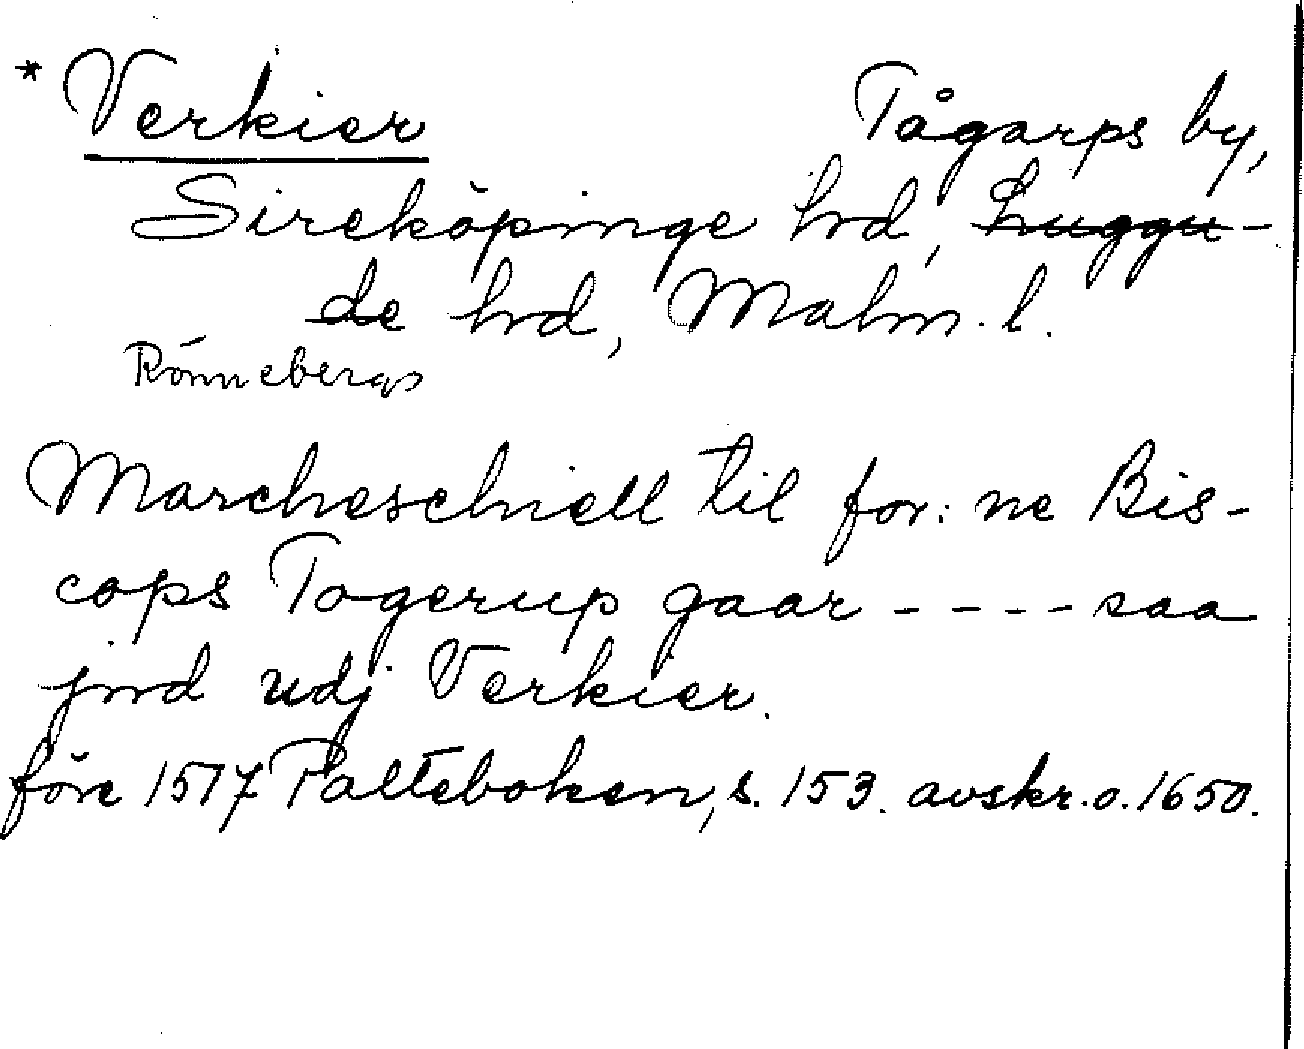 * Verkier Tågarps by,
Sireköpinge hrd, Luggu-
de hrd, Malm. l.
Rönnebergs
Marcheschiell til for: ne Bis-
cops Togerup gaar - - - - saa
jord udj Verkier.
före 1517 Palteboken, s. 153. avskr. o. 1650.